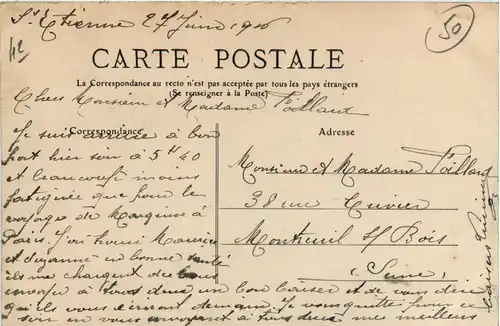 St Etienne 27 Juin 1916
50
CARTE POSTALE
La Correspondance au recto n'est pas acceptée par tous les pays étrangers
(Se renseigner à la Poste)
Chers Monsieur et Madame Foillard
Correspondance
Adresse
Je suis arrivée à bon
port hier soir à 5H40
et beaucoup moins
fatiguée que pour le
voyage de à
Paris. J'ai trouvé Maurice
et Suzanne en bonne santé
ils me chargent de vous
envoyer à tous deux un bon baiser et de vous dire
qu'ils vous écriront demain. Je vous quitte pour ce
soir en vous envoyant à tous deux mes meilleurs
Monsieur et Madame Foillard
38 rue Cuvier
Montreuil s/ Bois
(Seine)
baisers